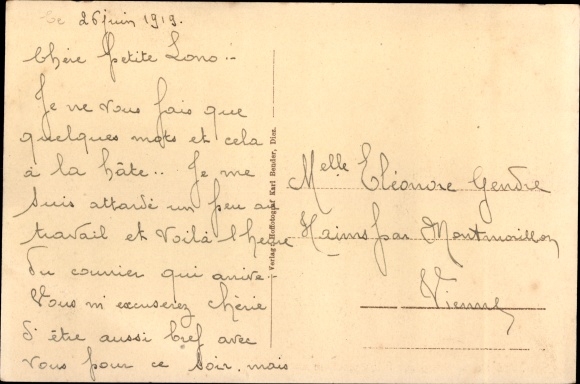 Le 26 juin 1919.
Chère Petite Lono..
Je ne vous fais que
quelques mots et cela
à la hâte.. Je me
suis attardé un peu au
travail et voilà l'heure
du courrier qui arrive.
Vous m'excuserez chérie
d'être aussi bref avec
vous pour ce soir, mais
Verlag: Hoffotograf Karl Bender, Diez.
Melle Eléonore Gendre
Haims par Montmorillon
Vienne